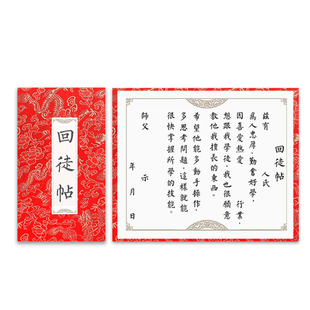 回徒帖
回徒帖
茲有　　　人氏
為人忠厚，勤奮好學，
因喜愛熱愛　　行業，
想跟我學徒，我也很願意
教他我擅長的東西。
希望他能多動手操作，
多思考問題，這樣就能
很快掌握所學的技能。
師父　　　示
年　月　日